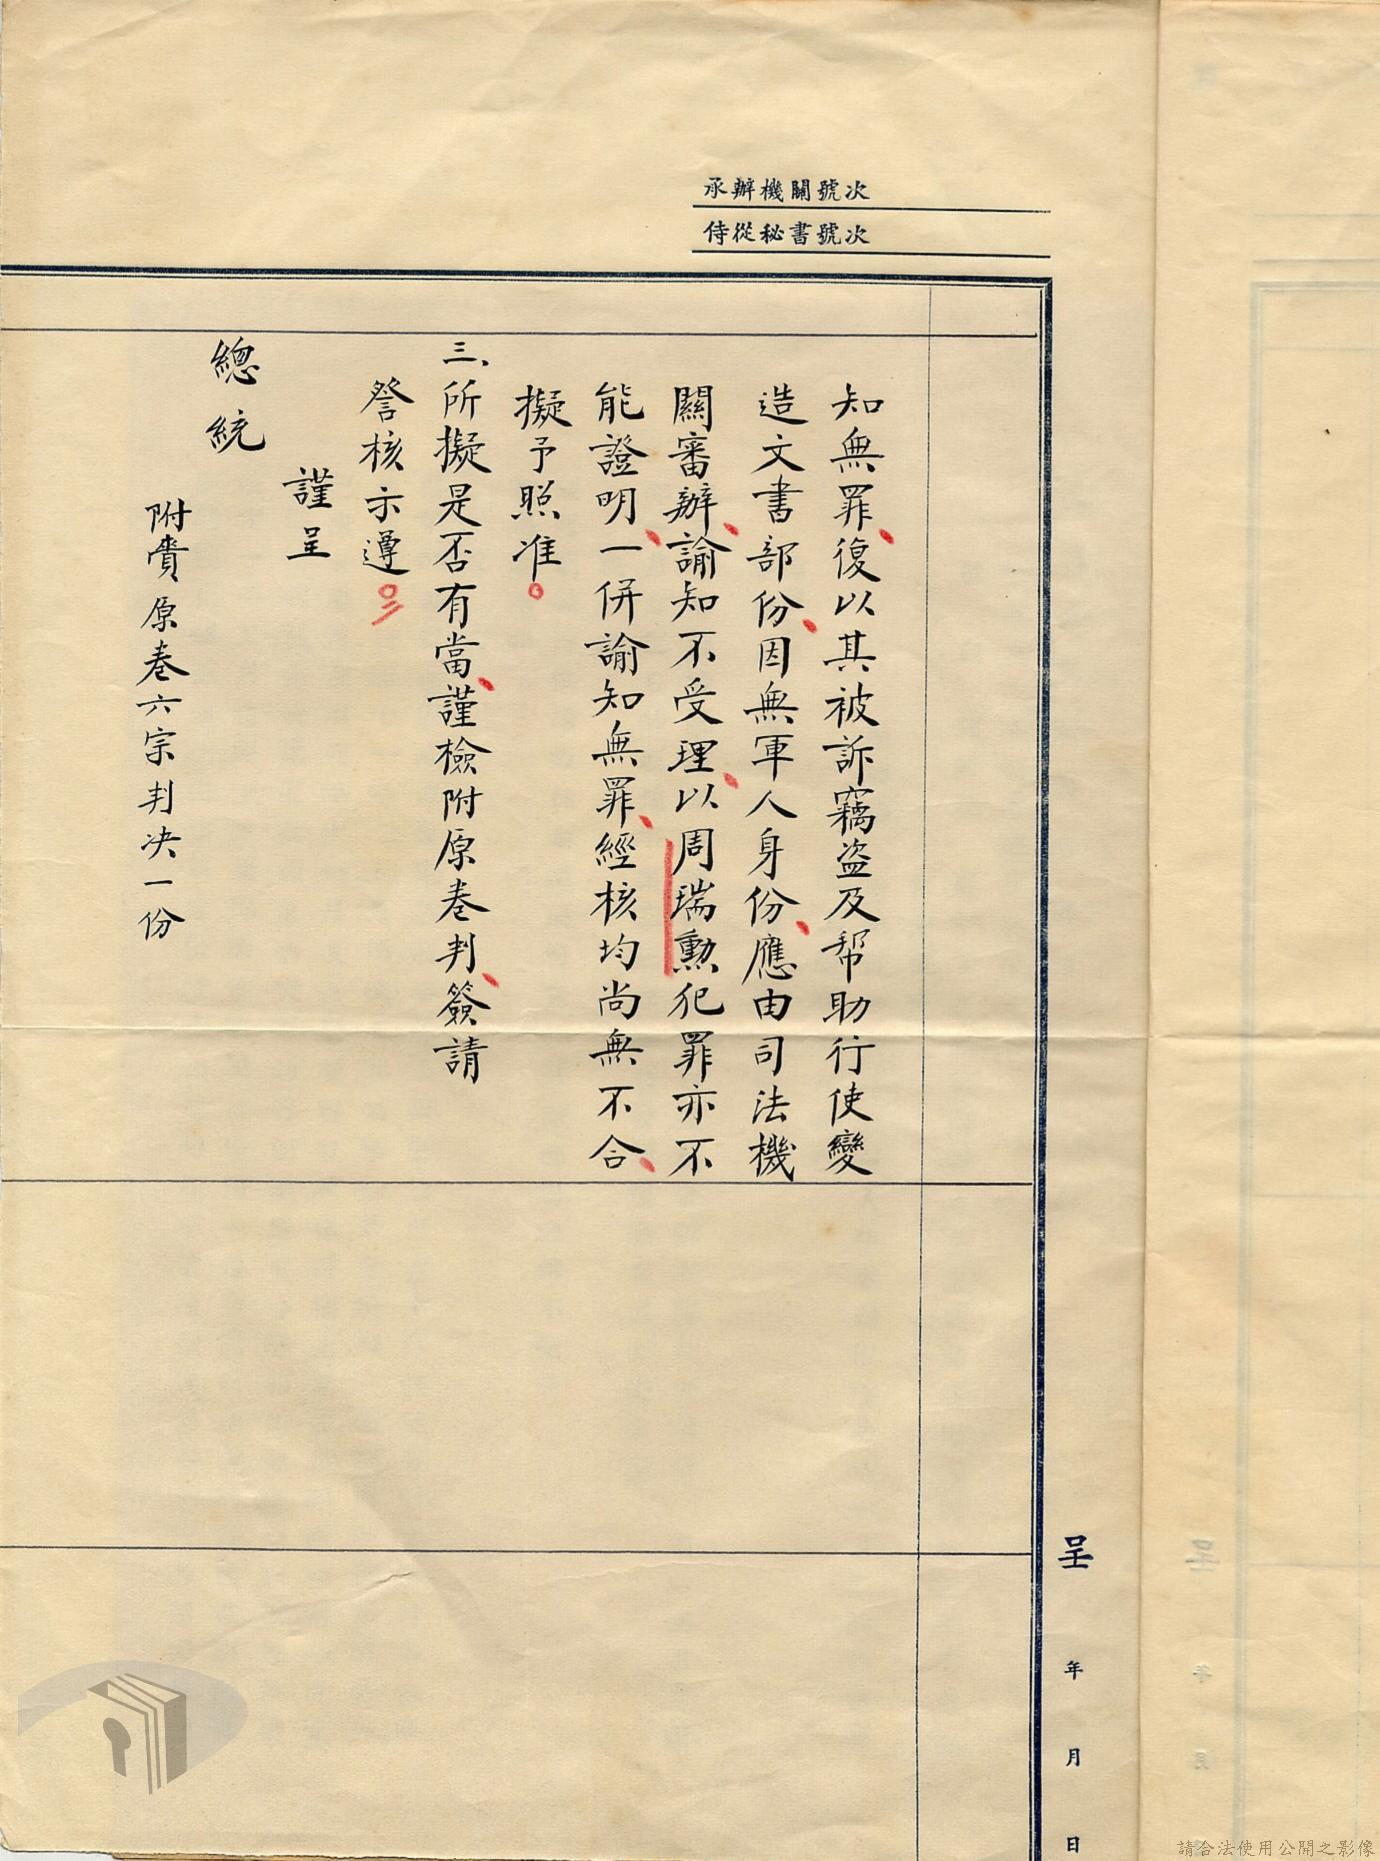 承辦機關號次
侍從秘書號次
知無罪、復以其被訴竊盜及帮助行使變
造文書部份、因無軍人身份、應由司法機
關審辦、諭知不受理、以周瑞勳犯罪亦不
能證明、一併諭知無罪、經核均尚無不合、
擬予照准。
三、所擬是否有當、謹檢附原卷判、簽請
詧核示遵。
謹呈
總統
附賷原卷六宗判决一份
呈 年 月 日
呈 年 月
請合法使用公開之影像